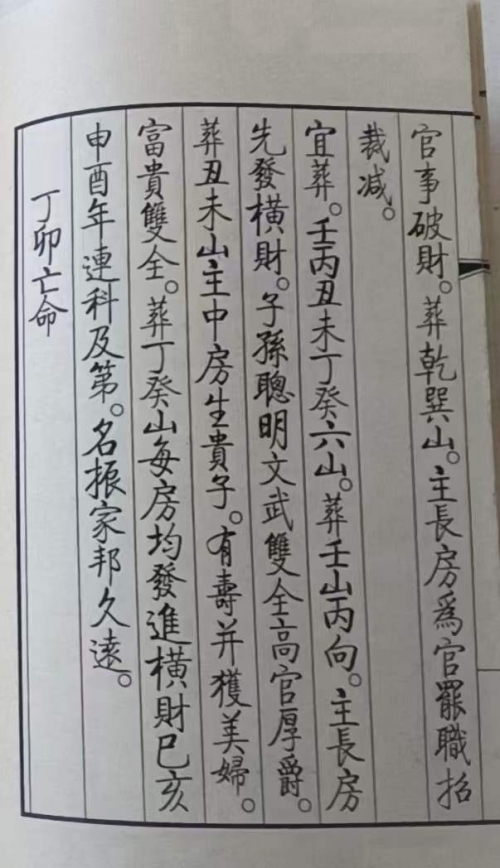 官事破財。葬乾巽山。主長房爲官罷職招
裁减。
宜葬。壬丙丑未丁癸六山。葬壬山丙向。主長房
先發橫財。子孫聰明文武雙全高官厚爵。
葬丑未山主中房生貴子。有壽并獲美婦。
富貴雙全。葬丁癸山每房均發進橫財巳亥
申酉年連科及第。名振家邦久遠。
丁卯亡命